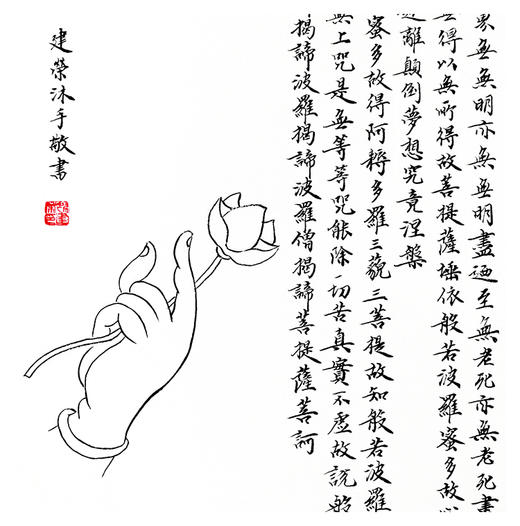 界無無明亦無無明盡迺至無老死亦無老死盡
無得以無所得故菩提薩埵依般若波羅蜜多故心
遠離顛倒夢想究竟涅槃
蜜多故得阿耨多羅三藐三菩提故知般若波羅
無上咒是無等等咒能除一切苦真實不虛故說般
揭諦波羅揭諦波羅僧揭諦菩提薩菩訶
建榮沐手敬書